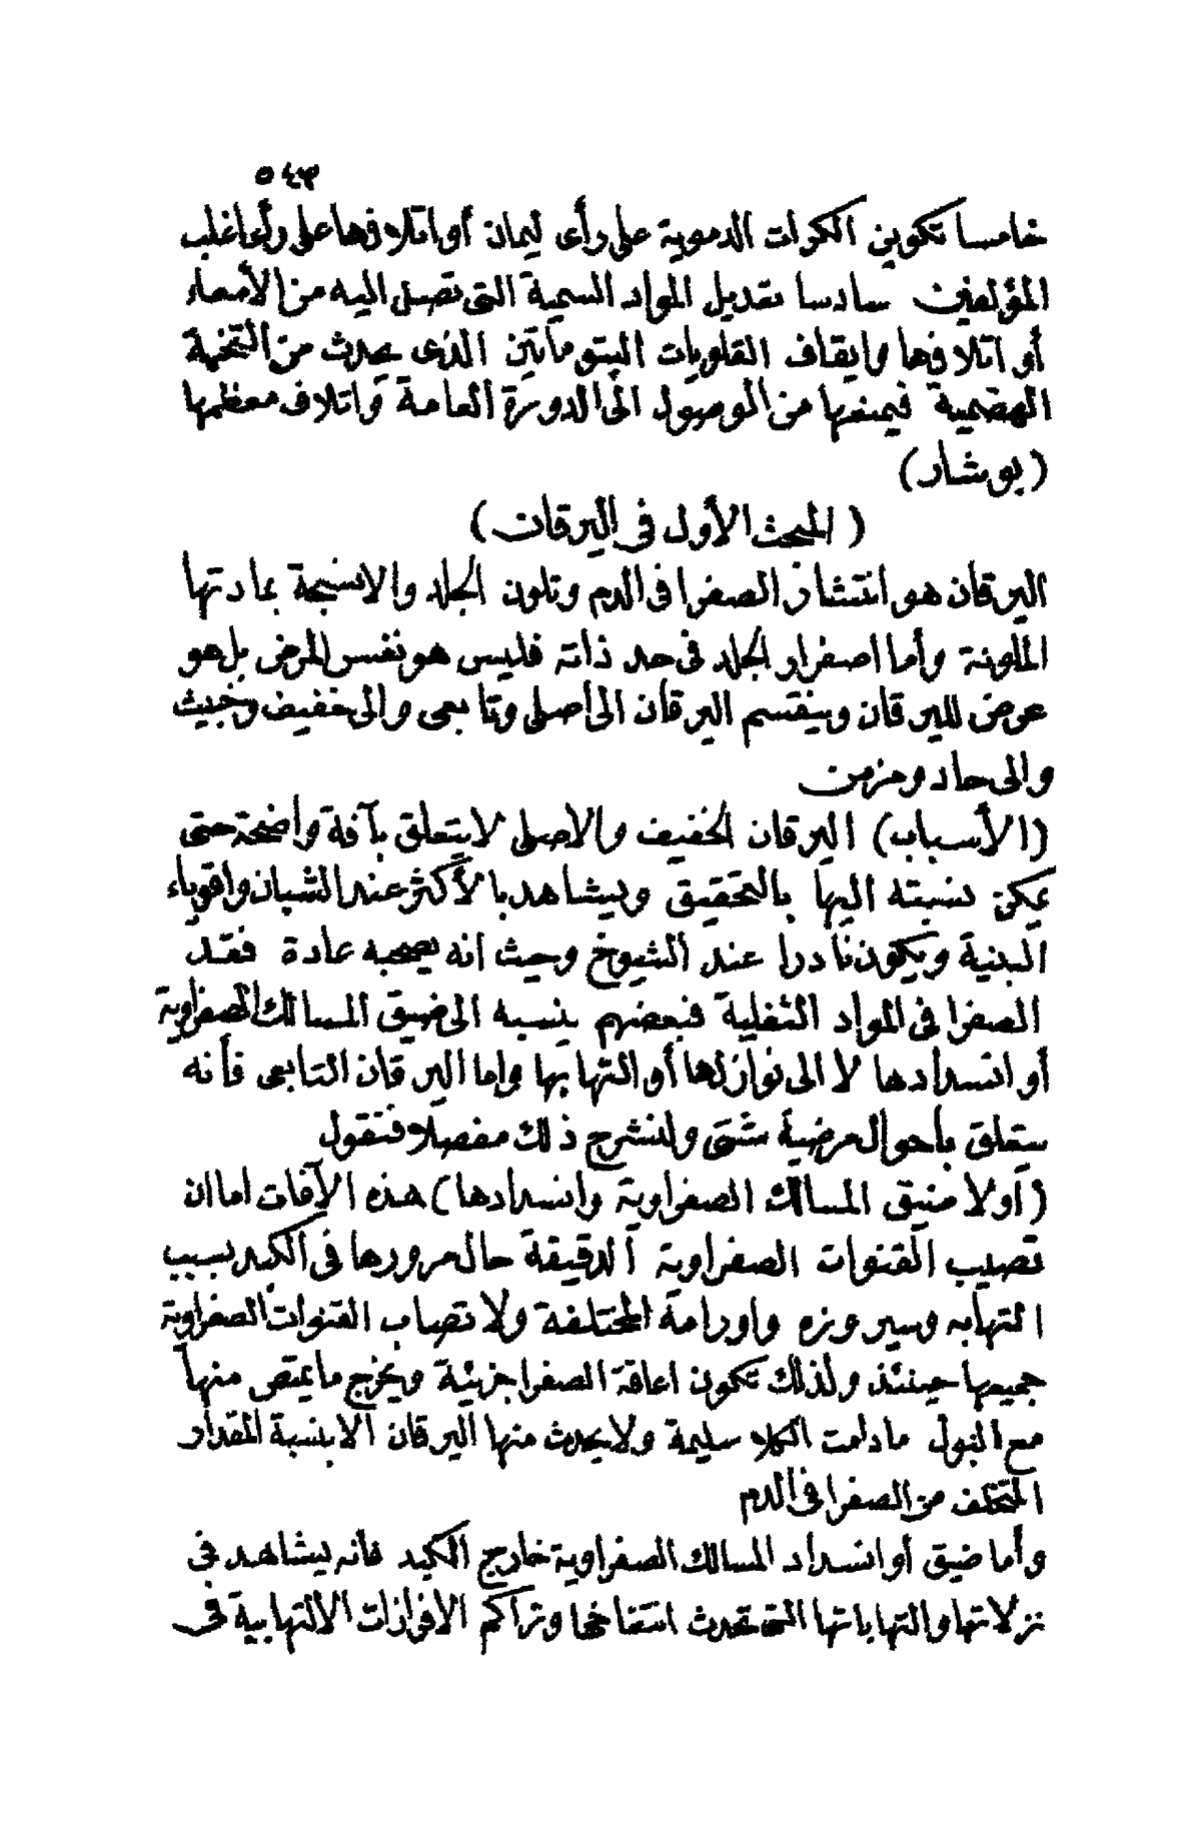 ٥٤٣
خامسا تكوين الكرات الدموية على رأى ليمان أو اتلافها على رأى اغلب
المؤلفين سادسا تعديل المواد السمية التى تصل اليه من الأمعاء
أو اتلافها وايقاف القلويات البتومايين الذى يحدث من التخمة
الهضمية فيمنعها من الوصول الى الدورة العامة واتلاف معظمها
(بوشار)
(المبحث الأول فى اليرقان)
اليرقان هو انتشار الصفرا فى الدم وتلون الجلد والانسجة بمادتها
الملونة وأما اصفرار الجلد فى حد ذاته فليس هو نفس المرض بل هو
عرض لليرقان وينقسم اليرقان الى أصلى وتابعى والى خفيف وخبيث
والى حاد ومزمن
(الأسباب) اليرقان الخفيف والاصلى لا يتعلق بآفة واضحة حتى
يمكن نسبته اليها بالتحقيق ويشاهد بالأكثر عند الشبان واقوياء
البنية ويكون نادرا عند الشيوخ وحيث انه يصحبه عادة فقد
الصفرا فى المواد الثفلية فبعضهم ينسبه الى ضيق المسالك الصفراوية
أو انسدادها لا الى نوازلها أو التهابها واما اليرقان التابعى فأنه
يتعلق بأحوال مرضية شتى ولنشرح ذلك مفصلا فنقول
(أولا ضيق المسالك الصفراوية وانسدادها) هذه الآفات اما ان
تصيب القنوات الصفراوية الدقيقة حال مرورها فى الكبد بسبب
التهابه وسيروزه واورامه المختلفة ولا تصاب القنوات الصفراوية
جميعها حينئذ ولذلك تكون اعاقة الصفرا جزيئة ويخرج ما يمتص منها
مع البول مادامت الكلا سليمة ولا يحدث منها اليرقان الا بنسبة المقدار
المتخلف من الصفرا فى الدم
وأما ضيق أو انسداد المسالك الصفراوية خارج الكبد فانه يشاهد فى
نزلاتها والتهاباتها التى تحدث انتفاخها وتراكم الافرازات الالتهابية فى